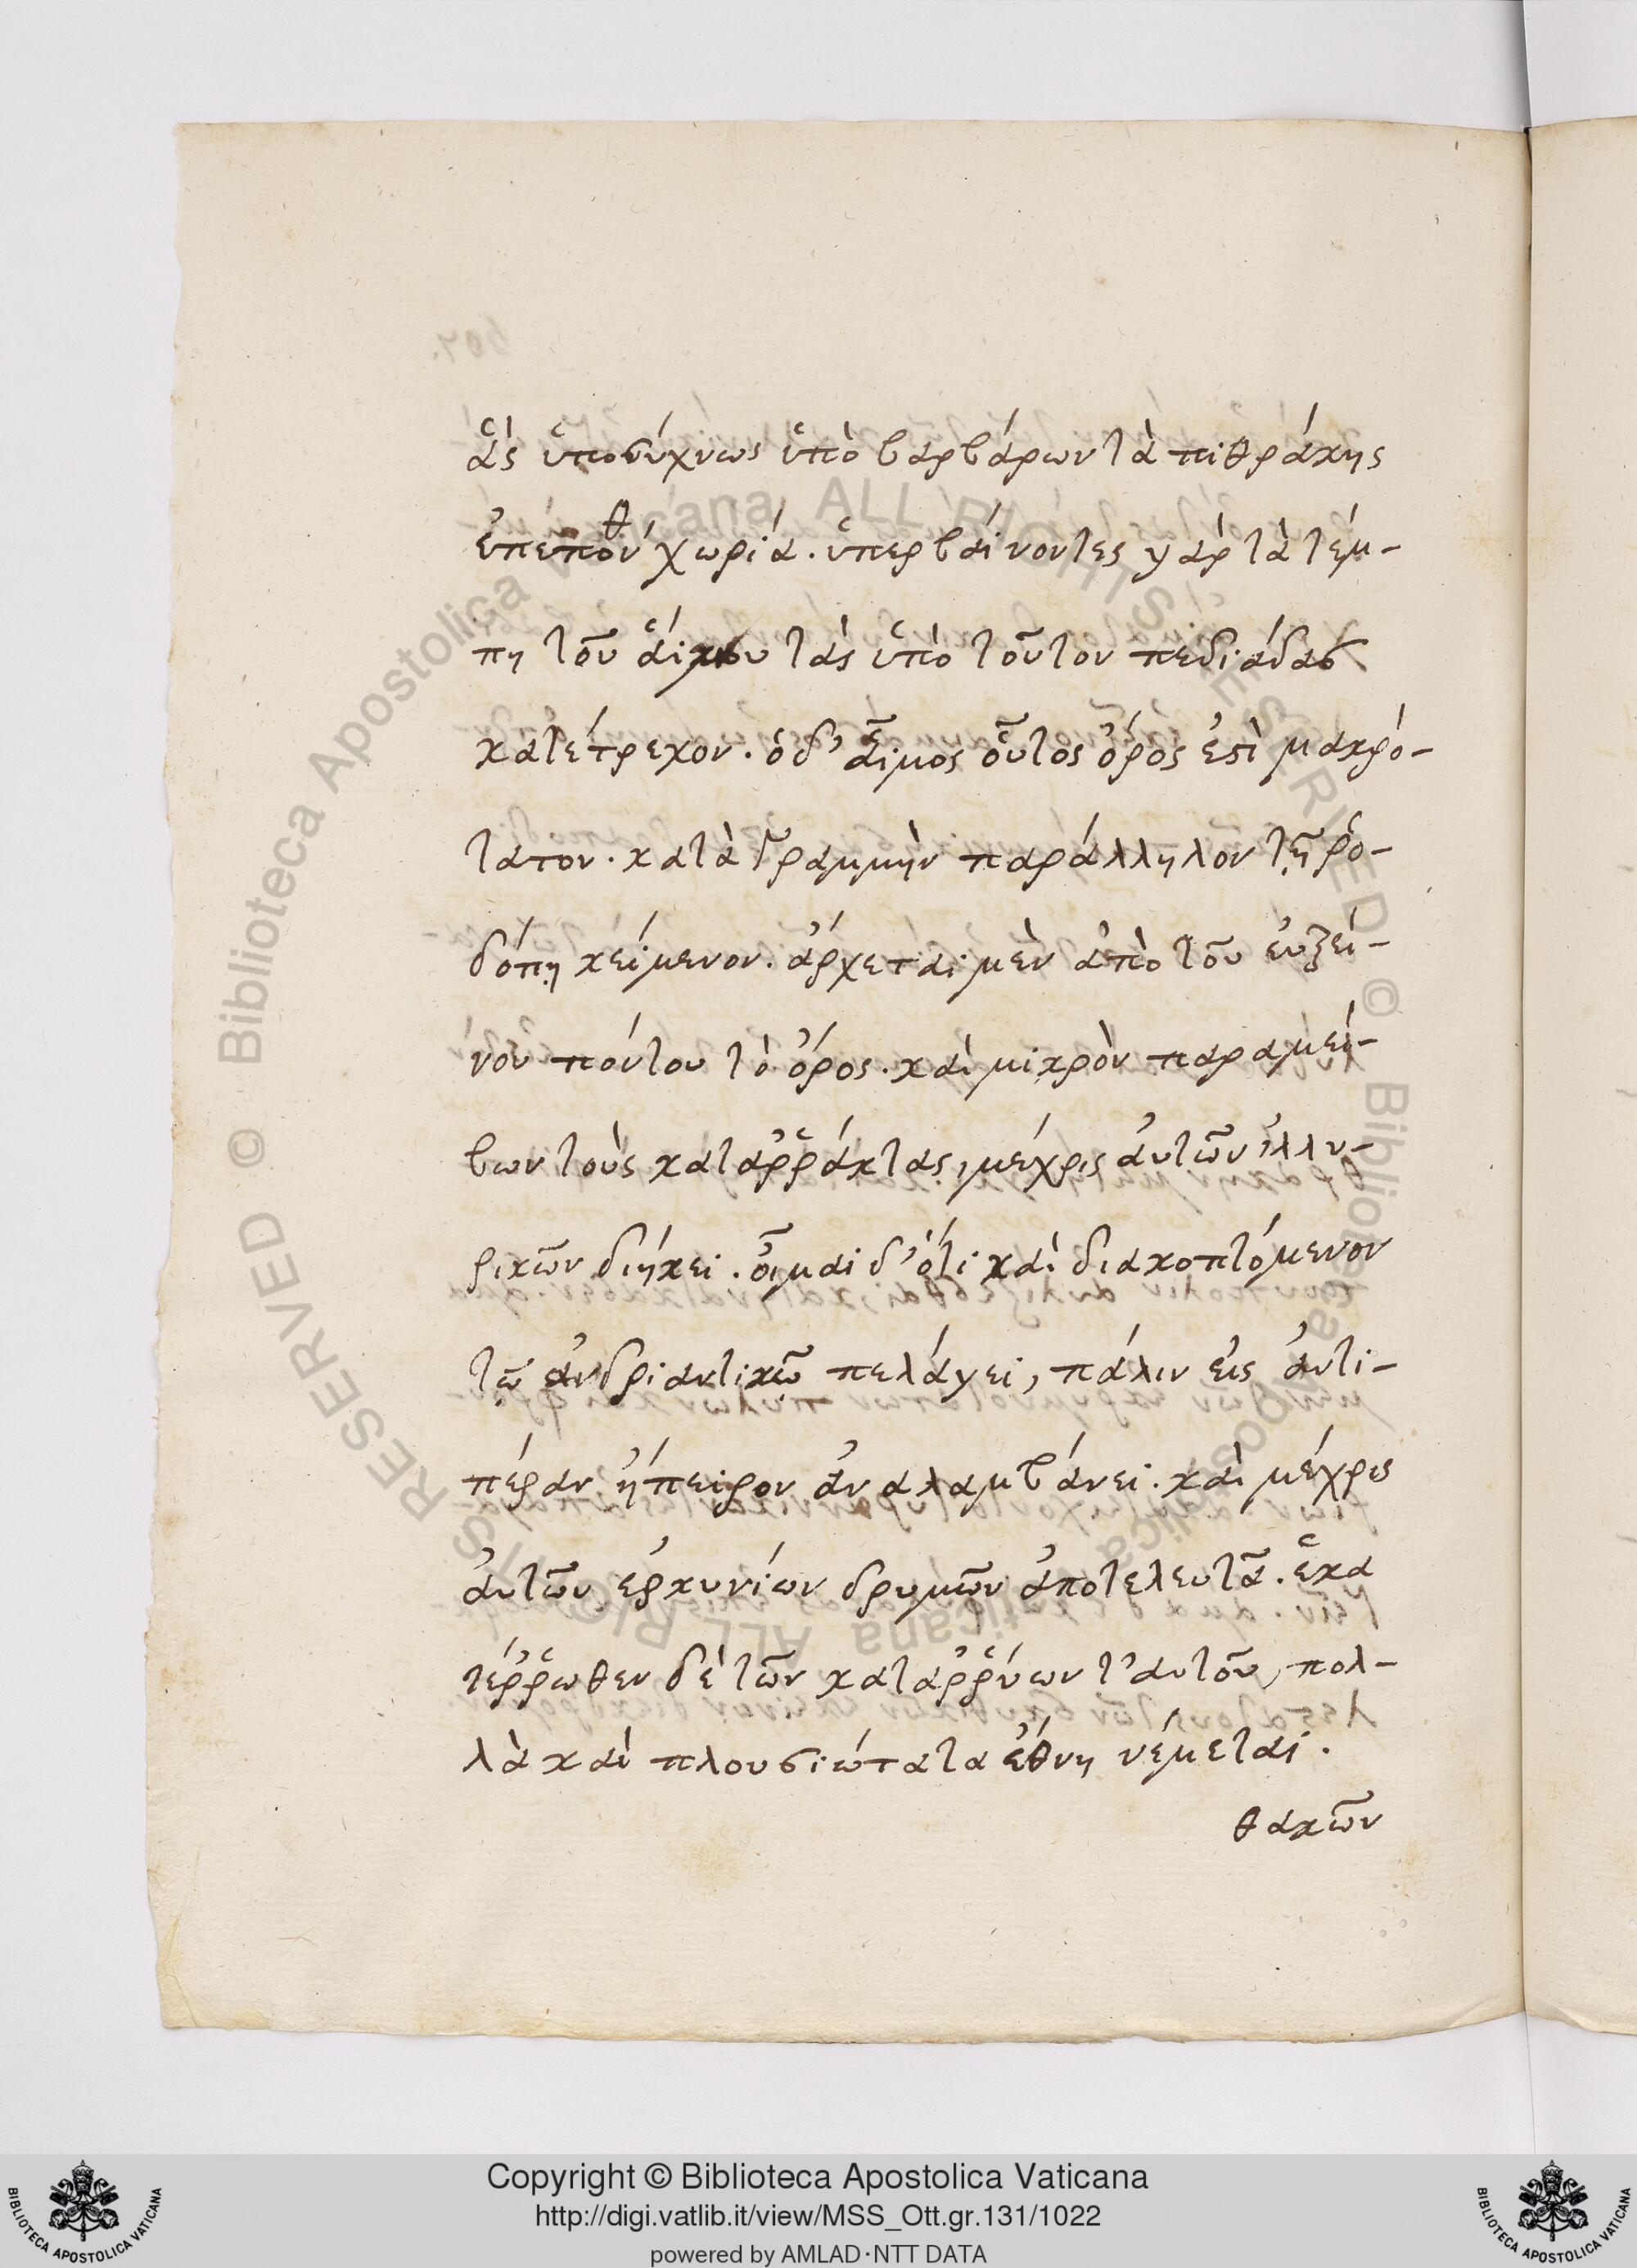 ἃς ὑποσύχνως ὑπὸ βαρβάρων τὰ πιθράκης
ἐπεπόνθ χωρία. ὑπερβαίνοντες γὰρ τὰ τέμ-
πη τοῦ ἅιμου τὰς ὑπὸ τοῦτον πεδιάδας
κατέτρεχον. ὁ δ' αἷμος οὗτος ὄρος ἐστὶ μακρό-
τατον. κατὰ γραμμὴν παράλληλον τῇ ῥο-
δόπῃ κείμενον. ἄρχεται μὲν ἀπὸ τοῦ ἐυξεί-
νου πόντου τὸ ὄρος. καὶ μικρὸν παραμεί-
βων τοὺς καταῤῥάκτας, μέχρις ἀυτῶν ἰλλυ-
ρικῶν διήκει. οἶμαι δ' ὅτι καὶ διακοπτόμενον
τῷ ἀνδριαντικῷ πελάγει, πάλιν εἰς ἀντι-
πέραν ἤπειρον ἀναλαμβάνει. καὶ μέχρις
ἀυτῶν ἐρκυνίων δρυμῶν ἀποτελευτᾶ. ἑκα
τέῤῥωθεν δὲ τῶν καταῤῥύων τ' αυτοῦ, πολ-
λὰ καὶ πλουσιώτατα ἔθνη νέμεται.
θακῶν
Copyright © Biblioteca Apostolica Vaticana
http://digi.vatlib.it/view/MSS_Ott.gr.131/1022
powered by AMLAD·NTT DATA
BIBLIOTECA APOSTOLICA VATICANA
BIBLIOTECA APOSTOLICA VATICANA
© Biblioteca Apostolica Vaticana ALL RIGHTS RESERVED
© Biblioteca Apostolica Vaticana ALL RIGHTS RESERVED